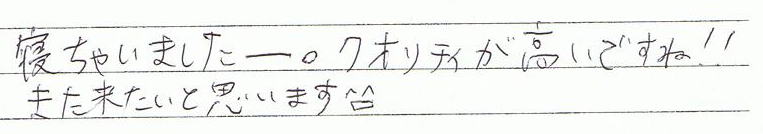 寝ちゃいましたー。クオリティが高いですね!!
また来たいと思います^^